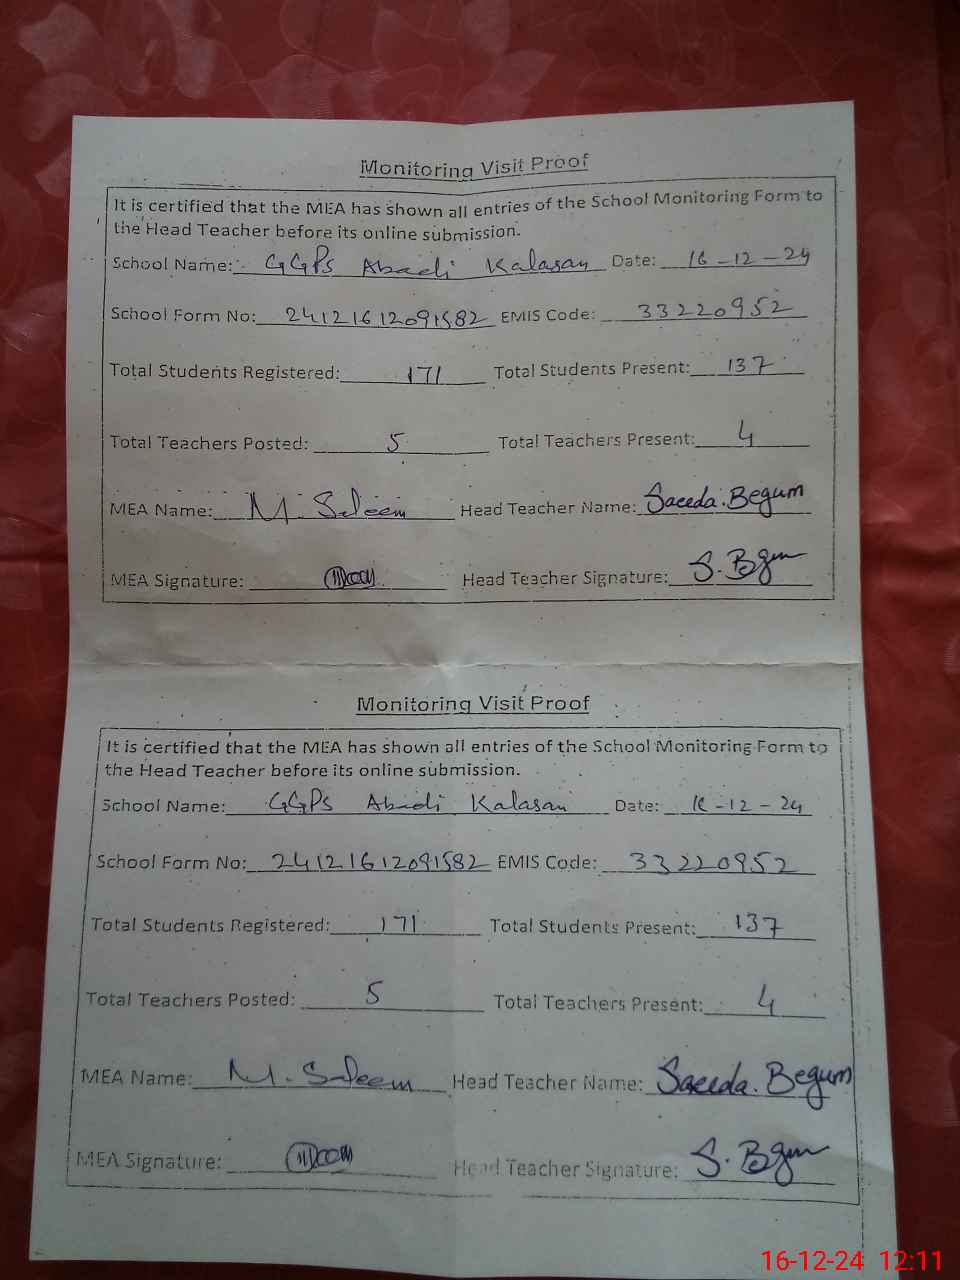 Monitoring Visit Proof
It is certified that the MEA has shown all entries of the School Monitoring Form to
the Head Teacher before its online submission.
School Name: GGPS Abadi Kalasan Date: 16-12-24
School Form No: 24121612091582 EMIS Code: 33220952
Total Students Registered: 171 Total Students Present: 137
Total Teachers Posted: 5 Total Teachers Present: 4
MEA Name: M. Saleem Head Teacher Name: Saeeda. Begum
MEA Signature: Head Teacher Signature: S. Bgm
Monitoring Visit Proof
It is certified that the MEA has shown all entries of the School Monitoring Form to
the Head Teacher before its online submission.
School Name: GGPS Abadi Kalasan Date: 16-12-24
School Form No: 24121612091582 EMIS Code: 33220952
Total Students Registered: 171 Total Students Present: 137
Total Teachers Posted: 5 Total Teachers Present: 4
MEA Name: M. Saleem Head Teacher Name: Saeeda. Begum
MEA Signature: Head Teacher Signature: S. Bgm
16-12-24 12:11